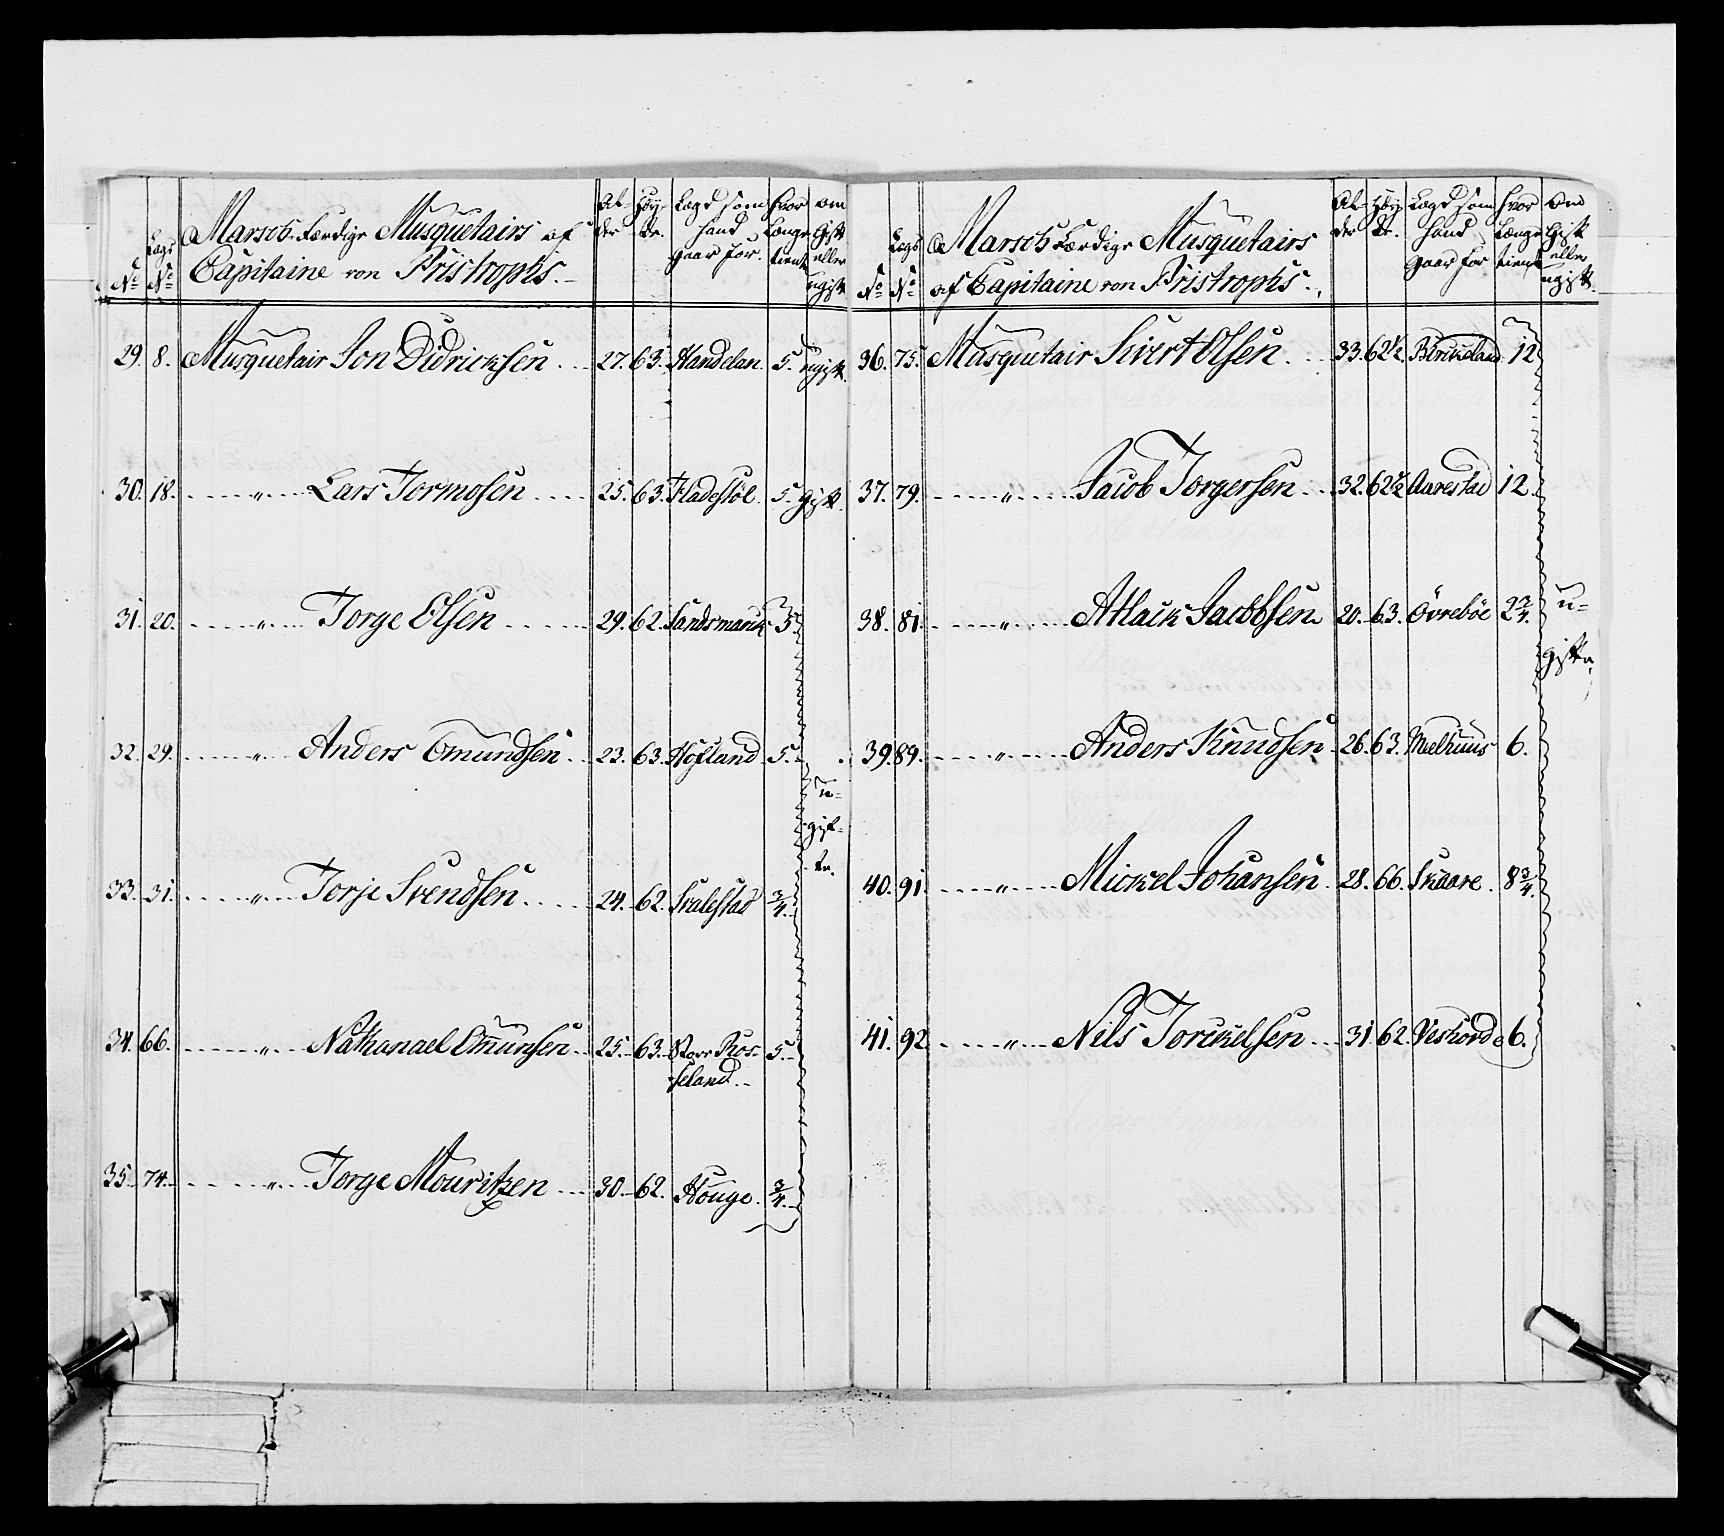 No Lægs No Marsch-Færdige Musquetairs af Capitaine von Fristrophs.- Al-der Høy-de. Lægd som hand gaar for. hvor Længe tient om gift eller ugift
29. 8. Musquetair Jon Didricksen 27. 63. Handelan. 5. ugift.
30. 18. " Lars Tormosen 25. 63. Fladestöl. 5. gift.
31. 20. " Torge Olsen 29. 62. Sandsmarck 5.
32. 29. " Anders Omundsen 23. 63. Höyland 5.
u-
gif-
te.
33. 31. " Torje Svendsen 24. 62. Svalestad 3/4.
34. 66. " Nathanael Omunsen 25. 63. Store Ros-
seland.-
5.
35. 74. " Torge Mouritzen 30. 62. Houge. 3/4.
No Lægs No Marsch Færdige Musquetairs af Capitaine von Fristrophs. Al-der Høy-de. Lægd som hand gaar for hvor Længe tient om gift eller ugift.
36. 75. Musquetair Sivert Olsen 33. 62½. Birckeland 12
37. 79. " Jacob Torgersen 32. 62½ Aarestad 12.
38. 81. " Atlack Jacobsen 20. 63. Övreböe 2 3/4.
u-
gifte.
39. 89. " Anders Knudsen 26. 63. Meelhuus 6.
40. 91. " Mickel Johansen 28. 66. Skaare. 8 3/4.
41. 92 " Nils Torckelsen 31. 62. Veshovde 6.